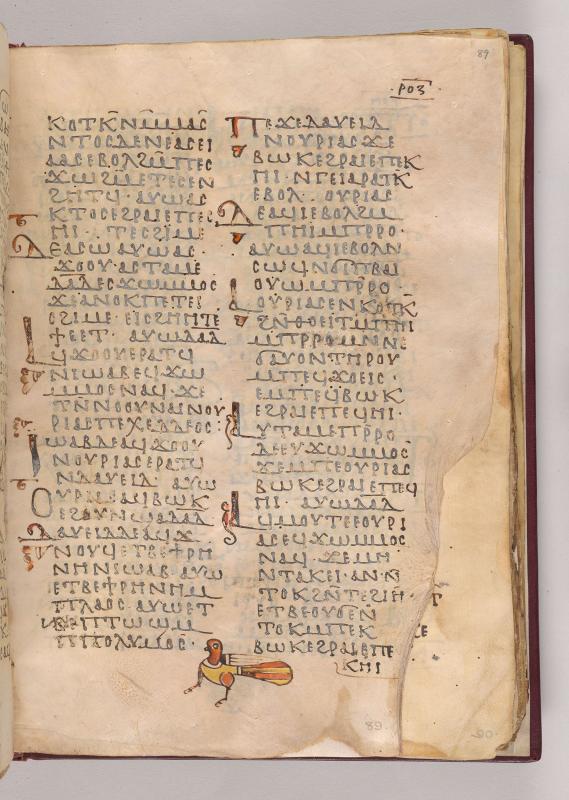 ·ⲣⲟⲍ·
89
ⲕⲟⲧⲕ̄ⲛⲙ̄ⲙⲁⲥ̄
ⲛⲧⲟⲥⲇⲉⲛⲉⲁⲥⲉⲓ
ⲁⲁⲥⲉⲃⲟⲗϩⲙⲡⲉⲥ
ϫⲱϩⲙⲉⲧⲉⲥⲉⲛ
ϩⲏⲧϥ · ⲁⲩⲱⲁⲥ
ⲕⲧⲟⲥⲉϩⲣⲁⲓⲉⲡⲉⲥ
ⲏⲓ · ⲧⲉⲥϩⲓⲙⲉ
ⲇⲉⲁⲥⲱⲁⲩⲱⲁⲥ
ϫⲟⲟⲩ·ⲁⲥⲧⲁⲙⲉ
ⲇⲁⲇⲉⲥϫⲱⲙⲙⲟⲥ
ϫⲉⲁⲛⲟⲕⲡⲉⲧⲉⲓ
ⲥϩⲓⲙⲉ · ⲉⲓⲥϩⲏⲏⲧⲉ
ϯⲉⲉⲧ · ⲁⲩⲱⲇⲁⲇ
ⲁϥϫⲟⲟⲩⲉⲣⲁⲧϥ
ⲛⲓⲱⲁⲃⲉϥϫⲱ
ⲙⲙⲟⲥⲛⲁϥ·ϫⲉ
ⲧⲛ̄ⲛⲟⲟⲩⲛⲁⲓⲛⲟⲩ
ⲣⲓⲁⲥⲡⲉⲭⲉⲇⲇⲉⲟⲥ:
ⲓⲱⲁⲃⲇⲉⲁϥϫⲟⲟⲩ
ⲛⲟⲩⲣⲓⲁⲥⲉⲣⲁⲧϥ
ⲛⲇⲁⲩⲉⲓⲇ· ⲁⲩⲱ
ⲟⲩⲣⲓⲁⲥⲁϥⲓⲃⲱⲕ
ⲉϩⲟⲩⲛϣⲁⲇⲁⲇ
ⲇⲁⲩⲉⲓⲇⲇⲉⲁϥϫ
ⲛⲟⲩϥⲉⲧⲃⲉϯⲣⲏ
ⲛⲏⲛⲓⲱⲁⲃ·ⲁⲩⲱ
ⲉⲧⲃⲉϯⲣⲏⲛⲏⲙ
ⲡⲗⲁⲟⲥ·ⲁⲩⲱⲉⲧ
ⲃⲉⲡⲧⲱϣⲙ
ⲡⲡⲟⲗⲩⲙⲟⲥ·
ⲡⲉϫⲉⲇⲁⲩⲉⲓⲇ
ⲛⲟⲩⲣⲓⲁⲥϫⲉ
ⲃⲱⲕⲉϩⲣⲁⲓⲉⲡⲉⲕ
ⲏⲓ·ⲛⲅⲉⲓⲁⲣⲁⲧⲕ
ⲉⲃⲟⲗ· ⲟⲩⲣⲓⲁⲥ
ⲇⲉⲁϥⲓⲉⲃⲟⲗϩⲙ
ⲡⲏⲓⲙⲡⲣⲣⲟ
ⲁⲩⲱⲁϥⲓⲉⲃⲟⲗⲛ
ⲥⲱϥⲛϭⲓⲡⲃⲁⲓ
ⲟⲩⲱⲙⲡⲣⲣⲟ·
ⲟⲩⲣⲓⲁⲥⲉⲛⲕⲟⲧⲕ
ϩⲛ̄ⲑⲟⲉⲓⲧⲙⲡⲏⲓ
ⲙⲡⲣⲣⲟⲙⲛⲛⲉ
ϭⲁⲩⲟⲛⲧⲏⲣⲟⲩ
ⲙⲡⲉϥϫⲟⲉⲓⲥ·
ⲉⲙⲡⲉϥⲃⲱⲕ
ⲉϩⲣⲁⲓⲉⲡⲉϥⲏⲓ·
ⲁⲩⲧⲁⲙⲉⲡⲣ̄ⲣⲟ
ⲇⲉⲉⲩϫⲱⲙⲙⲟⲥ
ϫⲉⲙⲡⲉⲟⲩⲣⲓⲁⲥ
ⲃⲱⲕⲉϩⲣⲁⲓⲉⲡⲉϥ
ⲏⲓ· ⲁⲩⲱⲇⲁⲇ
ⲁϥⲙⲟⲩⲧⲉⲉⲟⲩⲣⲓ
ⲁⲥⲉϥϫⲱⲙⲙⲟⲥ
ⲛⲁϥ·ϫⲉⲙⲏ
ⲛⲧⲁⲕⲉⲓ·ⲁⲛ·ⲛ̄
ⲧⲟⲕϩⲛ̄ⲧⲉϩⲓⲏ·
ⲉⲧⲃⲉⲟⲩϭⲉⲛ̄
ⲧⲟⲕⲙⲡⲉⲕ
ⲃⲱⲕⲉϩⲣⲁⲓⲉⲡⲉ
ⲕⲏⲓ
89
90